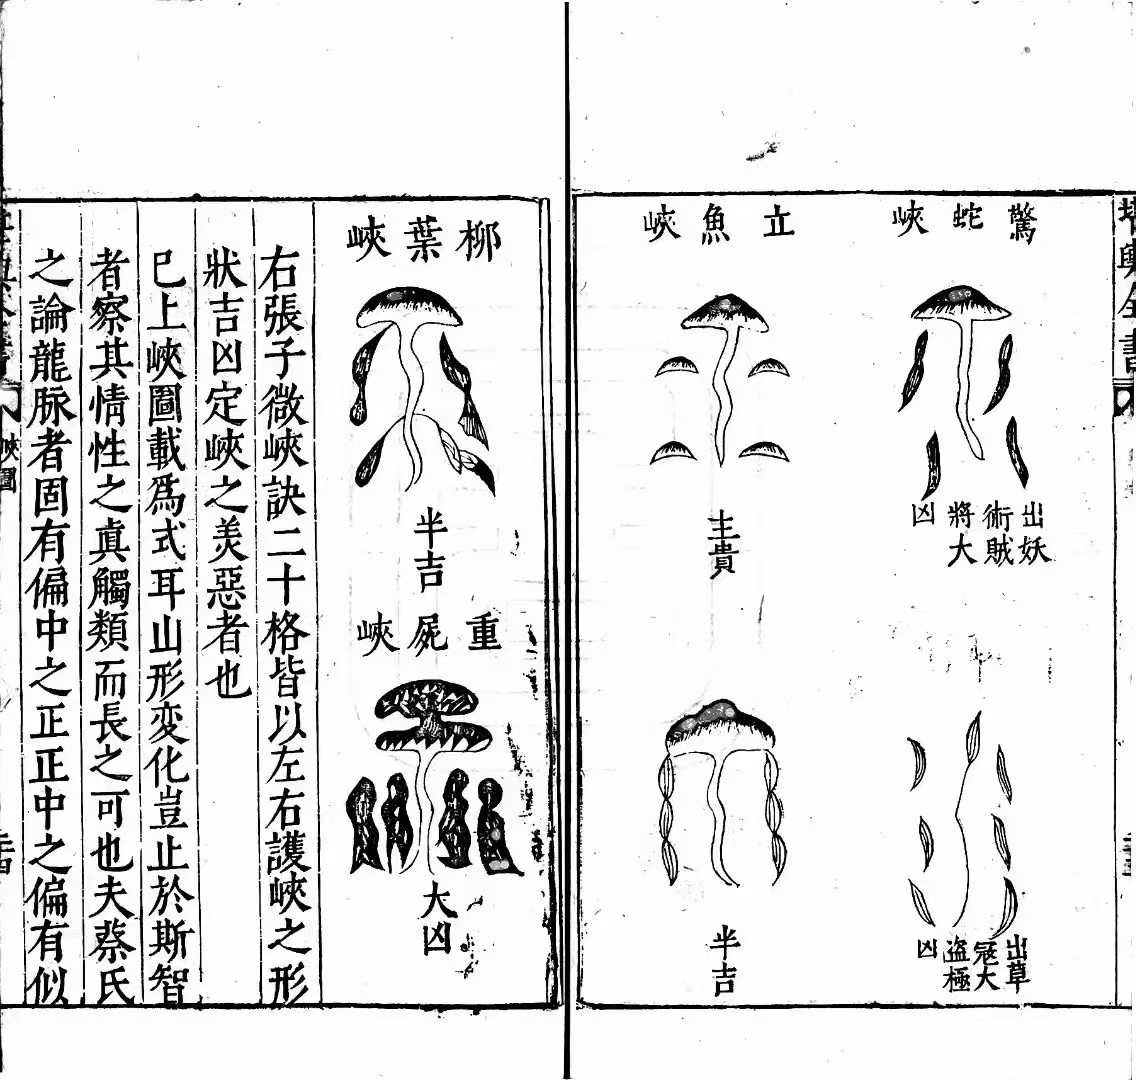 堪輿全書
驚蛇峽
出妖
術賊
將大
凶
出草
寇大
盜極
凶
立魚峽
主貴
半吉
柳葉峽
半吉
重屍峽
大凶
右張子微峽訣二十格皆以左右護峽之形
狀吉凶定峽之美惡者也
已上峽圖載爲式耳山形変化豈止於斯智
者察其情性之真觸類而長之可也夫蔡氏
之論龍脉者固有偏中之正正中之偏有似
峽圖